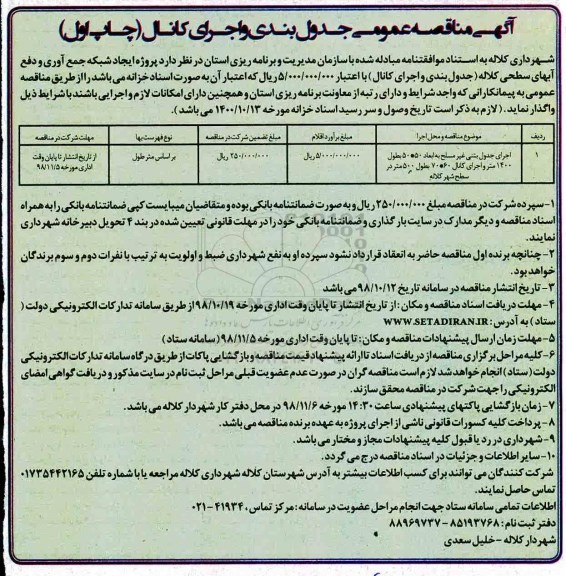 آگهی مناقصه عمومی جدول بندی واجرای کانال (چاپ اول)
شهرداری کلاله به استناد موافقتنامه مبادله شده با سازمان مدیریت و برنامه ریزی استان در نظر دارد پروژه ایجاد شبکه جمع آوری و دفع
آبهای سطحی کلاله (جدول بندی و اجرای کانال) با اعتبار ۵/۰۰۰/۰۰۰/۰۰۰ ریال که اعتبار آن به صورت اسناد خزانه می باشد را از طریق مناقصه
عمومی به پیمانکارانی که واجد شرایط و دارای رتبه از معاونت برنامه ریزی استان و همچنین دارای امکانات لازم و اجرایی باشند با شرایط ذیل
واگذار نماید. (لازم به ذکر است تاریخ وصول و سر رسید اسناد خزانه مورخه ۱۴۰۰/۱۰/۱۳ می باشد).
ردیف	موضوع مناقصه و محل اجرا	مبلغ برآورد اقلام	مبلغ تضمین شرکت در مناقصه	نوع فهرست بها	مهلت شرکت در مناقصه
۱	اجرای جدول بتنی غیر مسلح به ابعاد ۵۰*۵۰ بطول	۵/۰۰۰/۰۰۰/۰۰۰ ریال	۲۵۰/۰۰۰/۰۰۰ ریال	بر اساس متر طول	از تاریخ انتشار تا پایان وقت
۱۴۰۰ متر و اجرای کانال ۶۰*۷۰ بطول ۵۰۰ متر در	اداری مورخه ۹۸/۱۱/۵
سطح شهر کلاله
۱- سپرده شرکت در مناقصه مبلغ ۲۵۰/۰۰۰/۰۰۰ ریال و به صورت ضمانتنامه بانکی بوده و متقاضیان میبایست کپی ضمانتنامه بانکی را به همراه
اسناد مناقصه و دیگر مدارک در سایت بارگذاری و ضمانتنامه بانکی خود را در مهلت قانونی تعیین شده در بند ۴ تحویل دبیرخانه شهرداری
نمایند.
۲- چنانچه برنده اول مناقصه حاضر به انعقاد قرارداد نشود سپرده او به نفع شهرداری ضبط و اولویت به ترتیب با نفرات دوم و سوم برندگان
خواهد بود.
۳- تاریخ انتشار مناقصه در سامانه تاریخ ۹۸/۱۰/۱۲ می باشد
۴- مهلت دریافت اسناد مناقصه و مکان: از تاریخ انتشار تا پایان وقت اداری مورخه ۹۸/۱۰/۱۹ از طریق سامانه تدارکات الکترونیکی دولت (
ستاد) به آدرس: WWW.SETADIRAN.IR
۵- مهلت زمان ارسال پیشنهادات مناقصه و مکان: تا پایان وقت اداری مورخه ۹۸/۱۱/۵ (سامانه ستاد)
۶- کلیه مراحل برگزاری مناقصه از دریافت اسناد تا ارائه پیشنهاد قیمت مناقصه و بازگشایی پاکات از طریق درگاه سامانه تدارکات الکترونیکی
دولت (ستاد) انجام خواهد شد لازم است مناقصه گران در صورت عدم عضویت قبلی مراحل ثبت نام در سایت مذکور و دریافت گواهی امضای
الکترونیکی را جهت شرکت در مناقصه محقق سازند.
۷- زمان بازگشایی پاکتهای پیشنهادی ساعت ۱۴:۳۰ مورخه ۹۸/۱۱/۶ در محل دفتر کار شهردار کلاله می باشد.
۸- پرداخت کلیه کسورات قانونی ناشی از اجرای پروژه به عهده برنده مناقصه می باشد.
۹- شهرداری در رد یا قبول کلیه پیشنهادات مجاز و مختار می باشد.
۱۰- سایر اطلاعات و جزئیات در اسناد مناقصه درج می گردد.
شرکت کنندگان می توانند برای کسب اطلاعات بیشتر به آدرس شهرستان کلاله شهرداری کلاله مراجعه یا با شماره تلفن ۰۱۷۳۵۴۴۲۱۶۵
تماس حاصل نمایند.
اطلاعات تماس سامانه ستاد جهت انجام مراحل عضویت در سامانه: مرکز تماس، ۴۱۹۳۴-۰۲۱
دفتر ثبت نام: ۸۵۱۹۳۷۶۸ - ۸۸۹۶۹۷۳۷
شهردار کلاله - خلیل سعدی